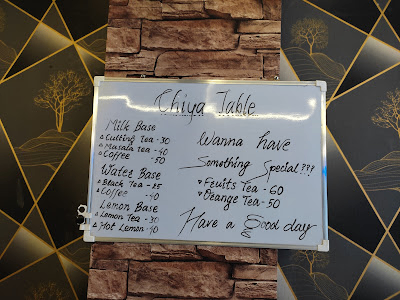 Chiya Table
Milk Base
Cutting Tea - 30
Masala tea - 40
Coffee 50
Water Base
Black Tea - 25
Coffee - 40
Lemon Base
Lemon Tea - 30
Hot Lemon - 40
Wanna have
Something Special???
Fruits Tea - 60
Orange Tea - 50
Have a Good day